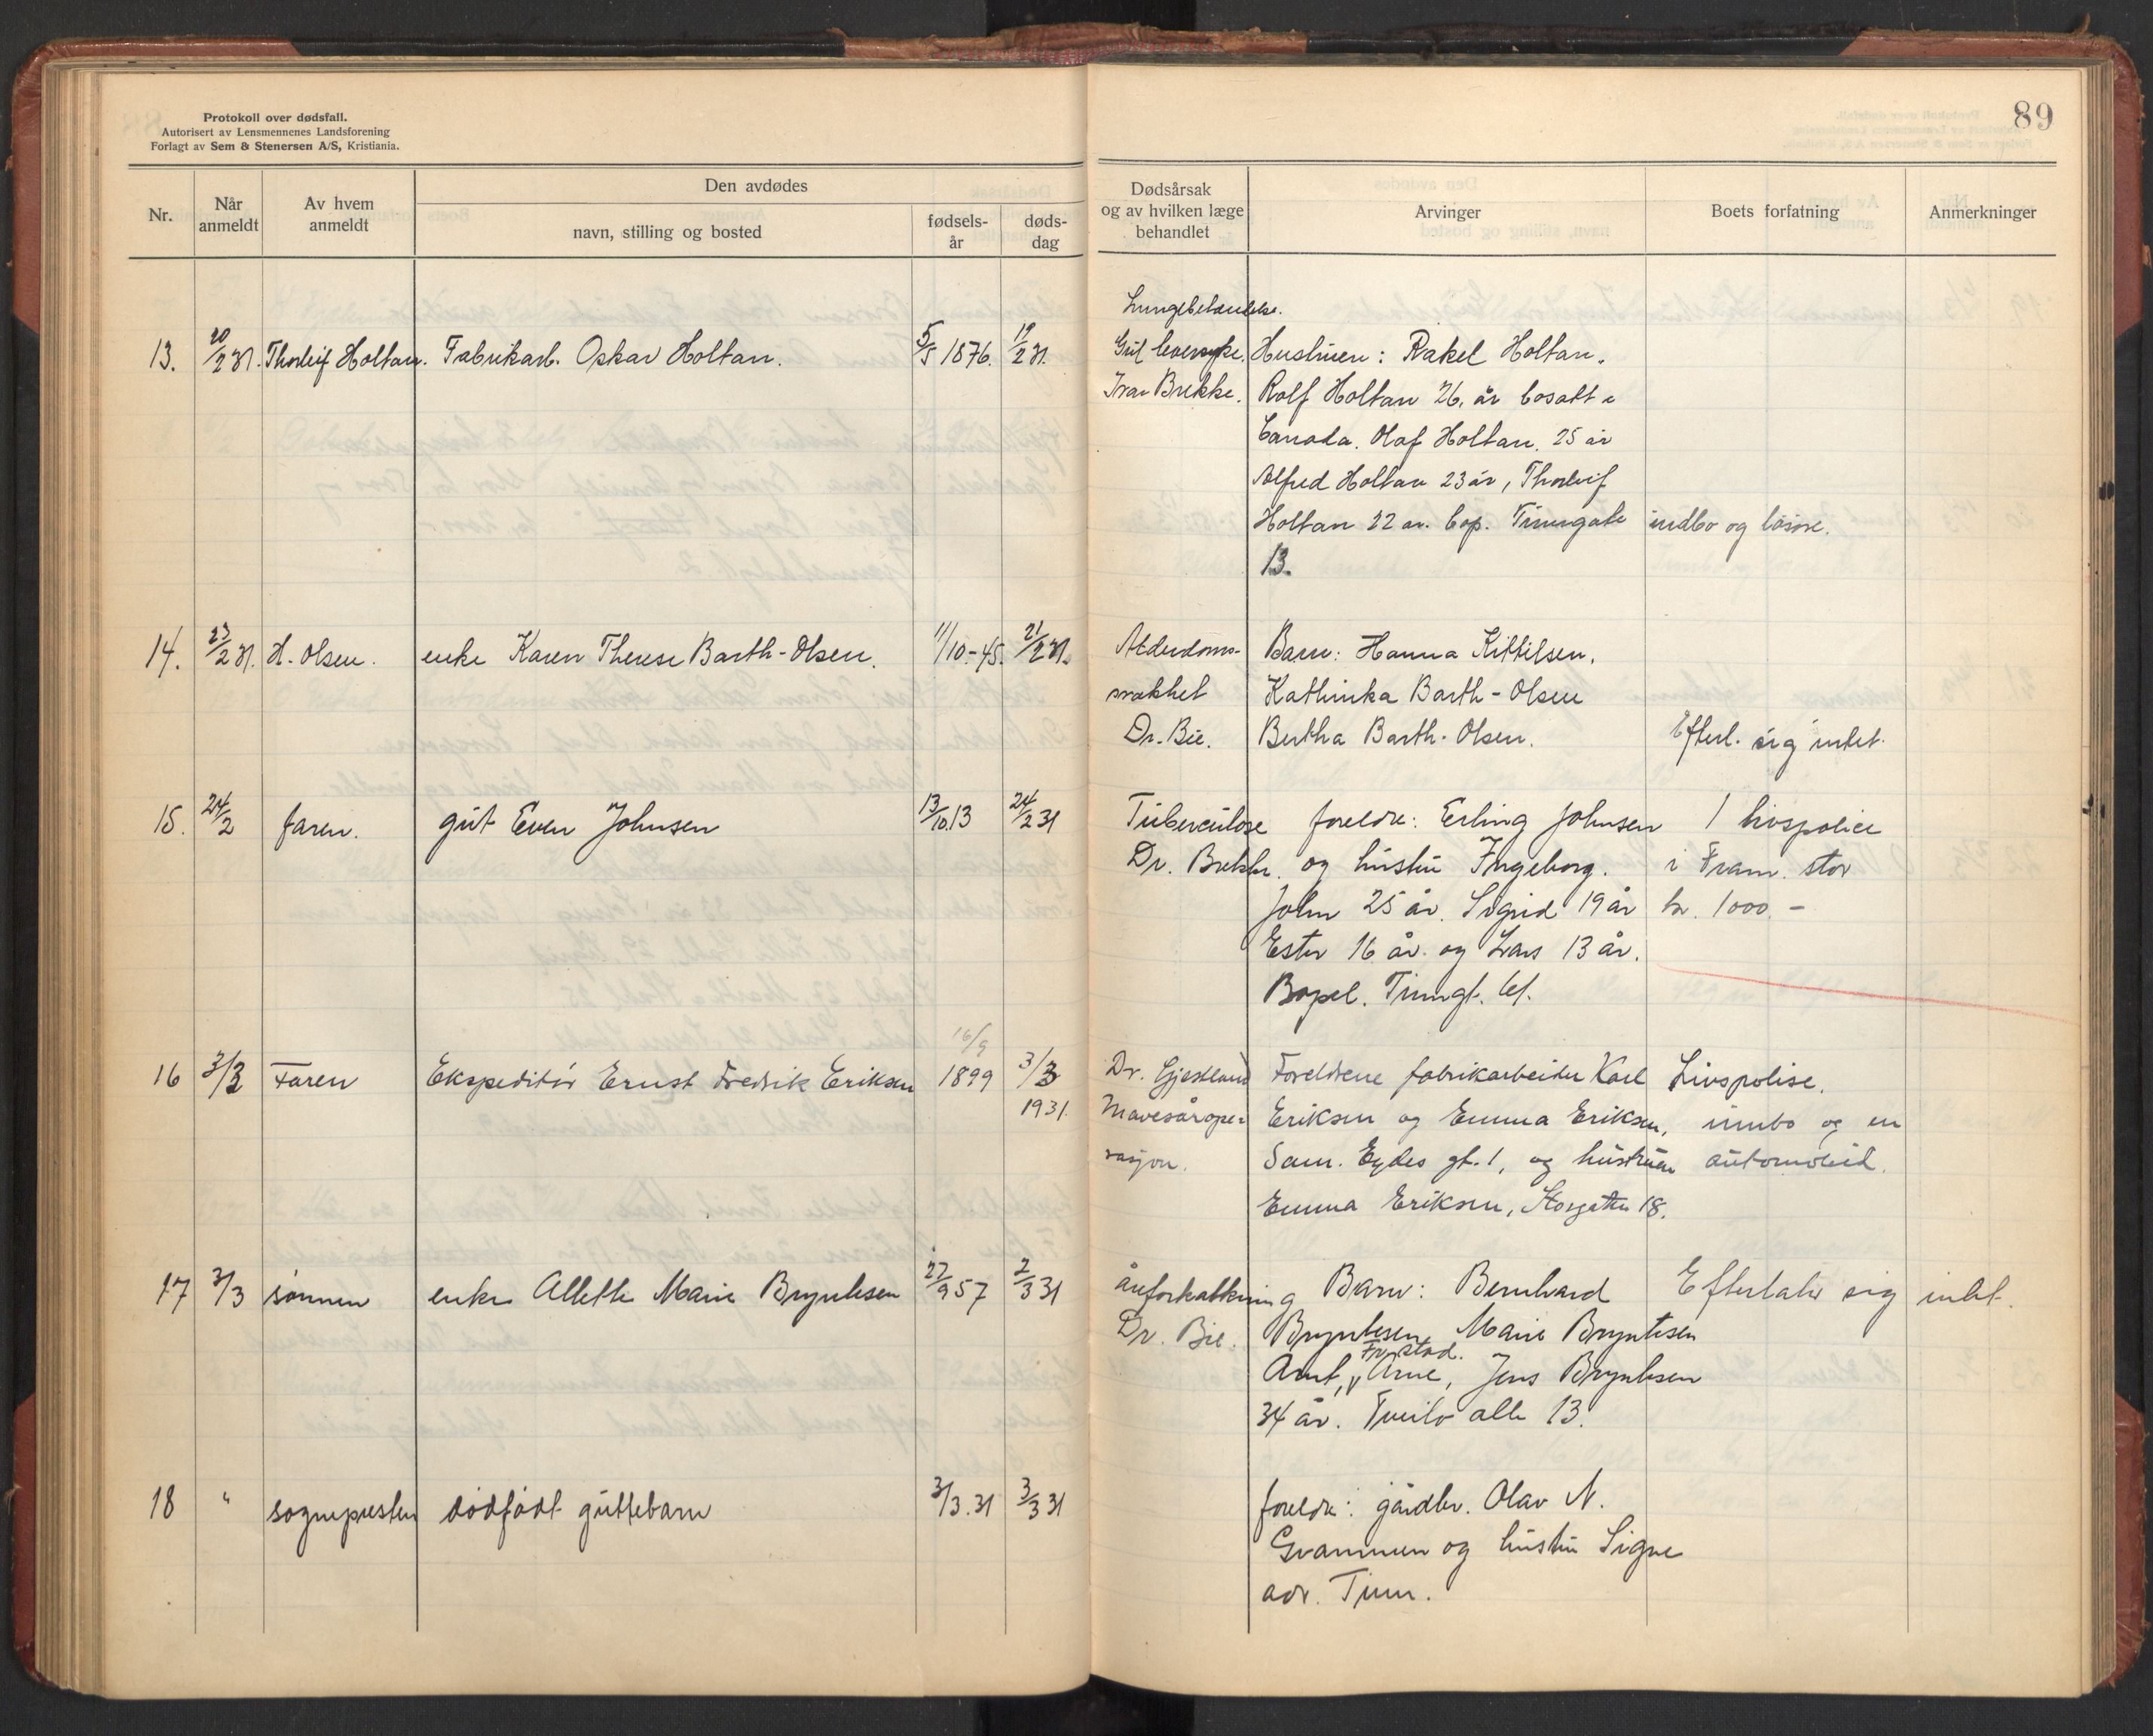 Protokoll over dødsfall.
Autorisert av Lensmennenes Landsforening
Forlagt av Sem & Stenersen A/S, Kristiania.
89
Nr.
Når anmeldt
Av hvem anmeldt
Den avdødes
navn, stilling og bosted
fødsels-år
døds-dag
Dødsårsak og av hvilken læge behandlet
Arvinger
Boets forfatning
Anmerkninger
13. 20/2 31. Thorleif Holtan. Fabrikarb. Oskar Holtan. 5/5 1876. 19/2 31.
Lungebetændelse.
Gul leversyke. Hustruen: Rakel Holtan.
Ivar Brekke. Rolf Holtan 26. år bosatt i
Canada. Olaf Holtan. 25 år
Alfred Holtan 23 år, Thorleif
Holtan 22 år. bop. Tinngate indbo og løsøre.
13.
14. 23/2 31. H. Olsen. enke Karen Therese Barth-Olsen. 11/10-45. 21/2 31.
Alderdoms- Barn: Hanna Kittilsen.
svakhet Kathinka Barth-Olsen
Dr. Bie. Bertha Barth-Olsen. Efterl. sig intet.
15. 24/2 faren. gut Even Johnsen 13/10.13 24/2 31
Tuberculose foreldre: Erling Johnsen 1 livspolice
Dr. Brekke. og hustru Ingeborg. i Fram. stor
John 25 år. Sigrid 19 år kr. 1000.-
Ester 16 år. og Lars 13 år.
Bopel. Tinngt. 61.
16/9
16 3/3 Faren Ekspeditør Ernst Fredrik Eriksen 1899 3/3
1931.
Dr. Gjestland Foreldrene fabrikarbeider Karl Livspolise.
Mavesårope- Eriksen og Emma Eriksen, innbo og en
rasjon. Sam. Eydes gt. 1, og hustruen automobil.
Emma Eriksen, Storgaten 18.
17 3/3 sønnen enke Allette Marie Bryntesen 27/9 57 2/3 31
åreforkalkning Barn: Bernhard Efterlater sig intet.
Dr. Bie. Bryntesen, Marie Bryntesen
Fr.stad.
Arnt, Arne, Jens Bryntesen
34 år. Tveito alle 13.
18 " sognepresten dødfødt guttebarn 3/3.31 3/3 31
foreldre: gårdbr. Olav N.
Gvammen og hustru Signe
adr. Tinn.